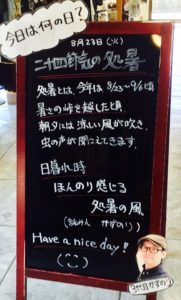 今日は何の日？
8月23日(火)
二十四節気の処暑
処暑とは、今年は8/23〜9/6頃
暑さの峠を越した頃
朝夕には涼しい風が吹き、
虫の声が聞こえてきます。
日暮れ時
ほんのり感じる
処暑の風
(詠み人 かずのり)
Have a nice day!
3代目かずのり